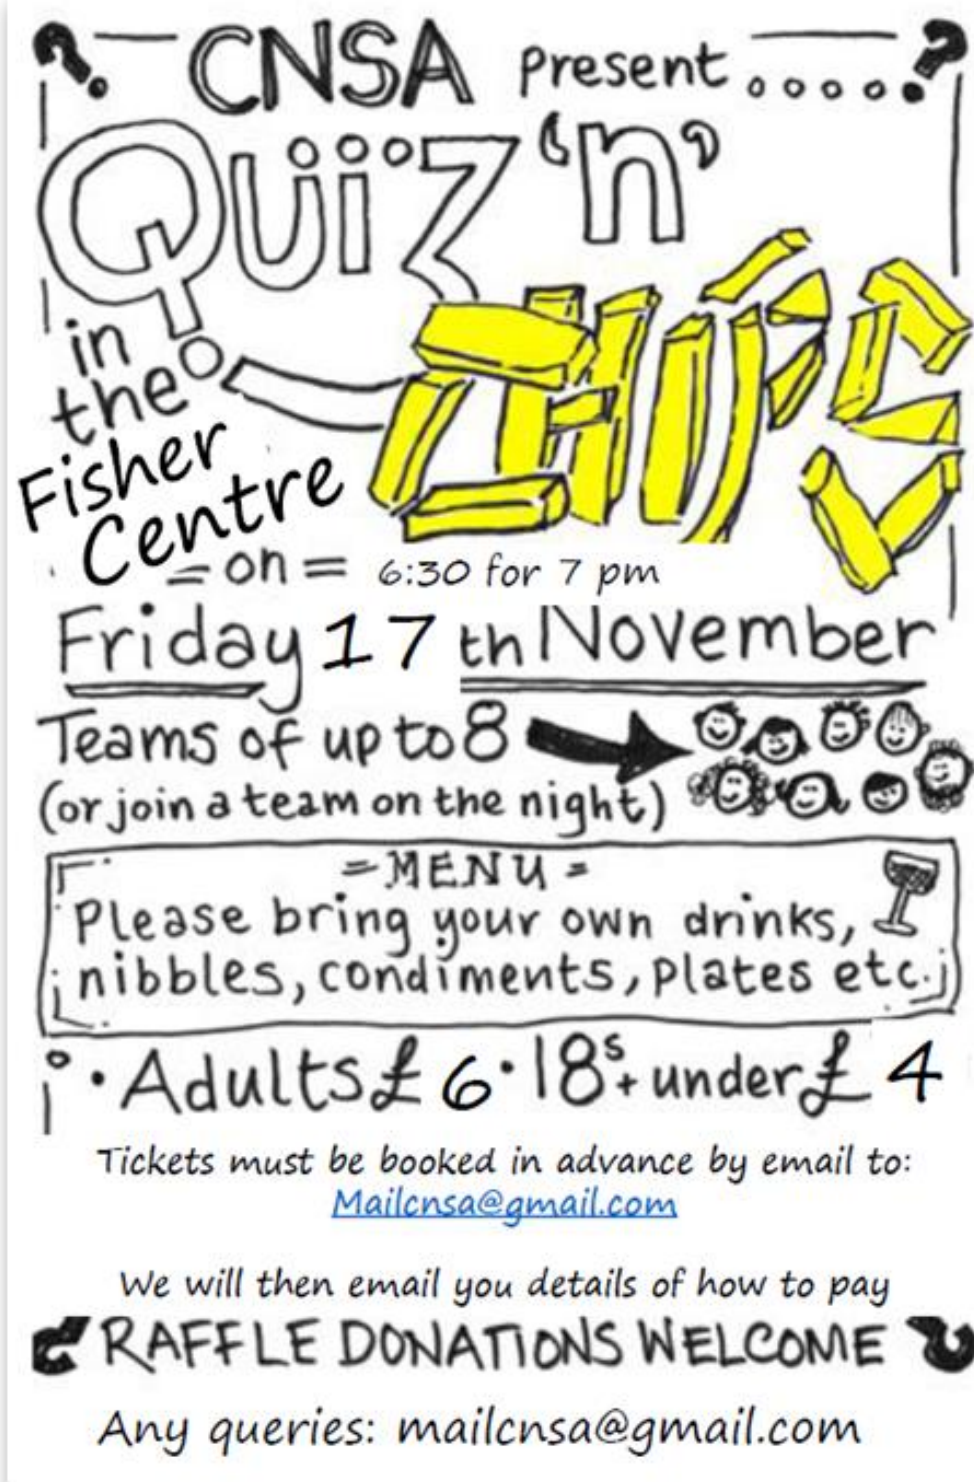 CNSA Present .....
Quiz 'n'
CHIPS
in
the
Fisher
Centre
= on = 6:30 for 7 pm
Friday 17 th November
Teams of up to 8
(or join a team on the night)
= MENU =
Please bring your own drinks,
nibbles, condiments, plates etc.
• Adults £ 6 • 18s + under £ 4
Tickets must be booked in advance by email to:
Mailcnsa@gmail.com
We will then email you details of how to pay
RAFFLE DONATIONS WELCOME
Any queries: mailcnsa@gmail.com